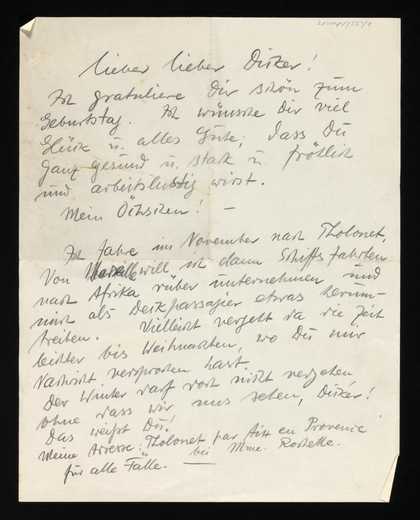 lieber lieber Dicker!
Ich gratuliere Dir schön zum
Geburtstag. Ich wünsche Dir viel
Glück u. alles Gute, dass Du
ganz gesund u. stark u. fröhlich
und arbeitslustig wirst.
Mein Öchschen! —
Ich fahre im November nach Tholonet,
Von will ich dann Schiffsfahrten
nach Afrika rüber unternehmen und
mich als Deckpassagier etwas herum-
treiben. Vielleicht vergeht da die Zeit
leichter bis Weihnachten, wo Du mir
Nachricht versprochen hast.
Der Winter darf doch nicht vergehen
ohne dass wir uns sehen, Dicker!
Das weißt Du!
Meine Adresse: Tholonet par Aix en Provence
bei Mme.
für alle Fälle. —